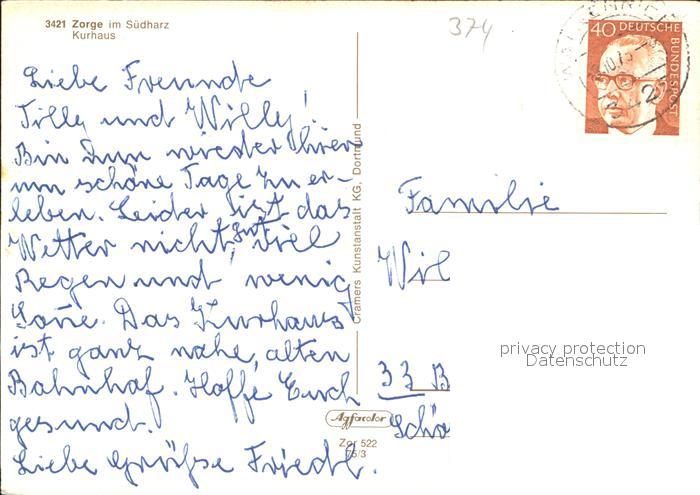 3421 Zorge im Südharz
Kurhaus
374
40 DEUTSCHE BUNDESPOST
Liebe Freunde
Tilly und Willy!
Bin nun wieder hier
um schöne Tage zu er-
leben. Leider ist das
Wetter nicht gut, viel
Regen und wenig
Sone. Das Kurhaus
ist ganz nahe, alten
Bahnhof. Hoffe Euch
gesund.
Liebe Grüße Friedl.
Cramers Kunstanstalt KG. Dortmund
Agfacolor
Zor 522
75/3
Familie
Wil
33 B
Schö
privacy protection
Datenschutz